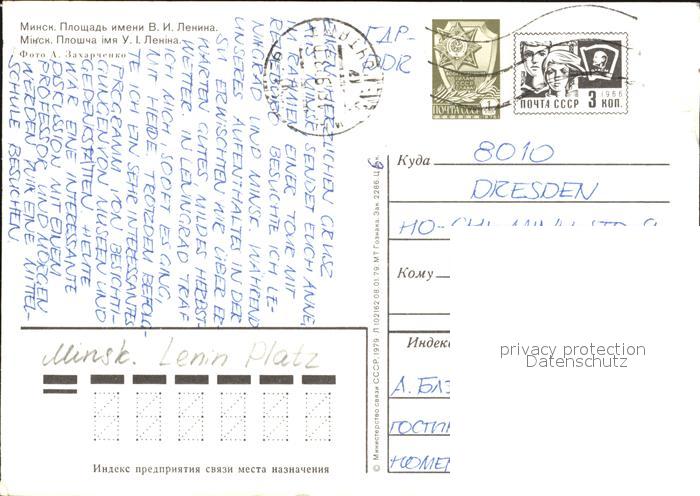 Минск. Площадь имени В. И. Ленина.
Мінск. Плошча імя У. І. Леніна.
Фото А. Захарченко
EINEN HERZLICHEN GRUSZ
AUS SENDET EUCH ANNE.
IM RAHMEN EINER TOUR MIT
REISEBÜRO BESUCHTE ICH LE-
NINGRAD UND MINSK. WÄHREND
UNSERES AUFENTHALTES IN DER
SU ERWISCHTEN WIR ÜBER ER-
WARTEN GUTES MILDES HERBST-
WETTER. IN LENINGRAD TRAF
ICH MICH, SOOFT ES GING,
MIT HEIDE. TROTZDEM BEFOLG-
TE ICH EIN SEHR INTERESSANTES
PROGRAMM VON BESICHTI-
GUNGEN VON MUSEEN UND
GEDENKSTÄTTEN. HEUTE
WAR EINE INTERESSANTE
DISCUSSION MIT EINEM
PROFESSOR, UND MORGEN
WERDEN WIR EINE MITTEL-
SCHULE BESUCHEN.
Minsk. Lenin Platz
Индекс предприятия связи места назначения
© Министерство связи СССР, 1979 Л 102162 08.01.79. МТ Гознака. Зак. 2286. Ц.
ГДР-
DDR
ПОЧТА СССР
ПОЧТА СССР 3 КОП.
1966
Куда 8010
DRESDEN
HO-CHI-MINH-STR. 9
Кому
Индекс
А. БЛЭ
ГОСТИН
НОМЕР
privacy protection
Datenschutz